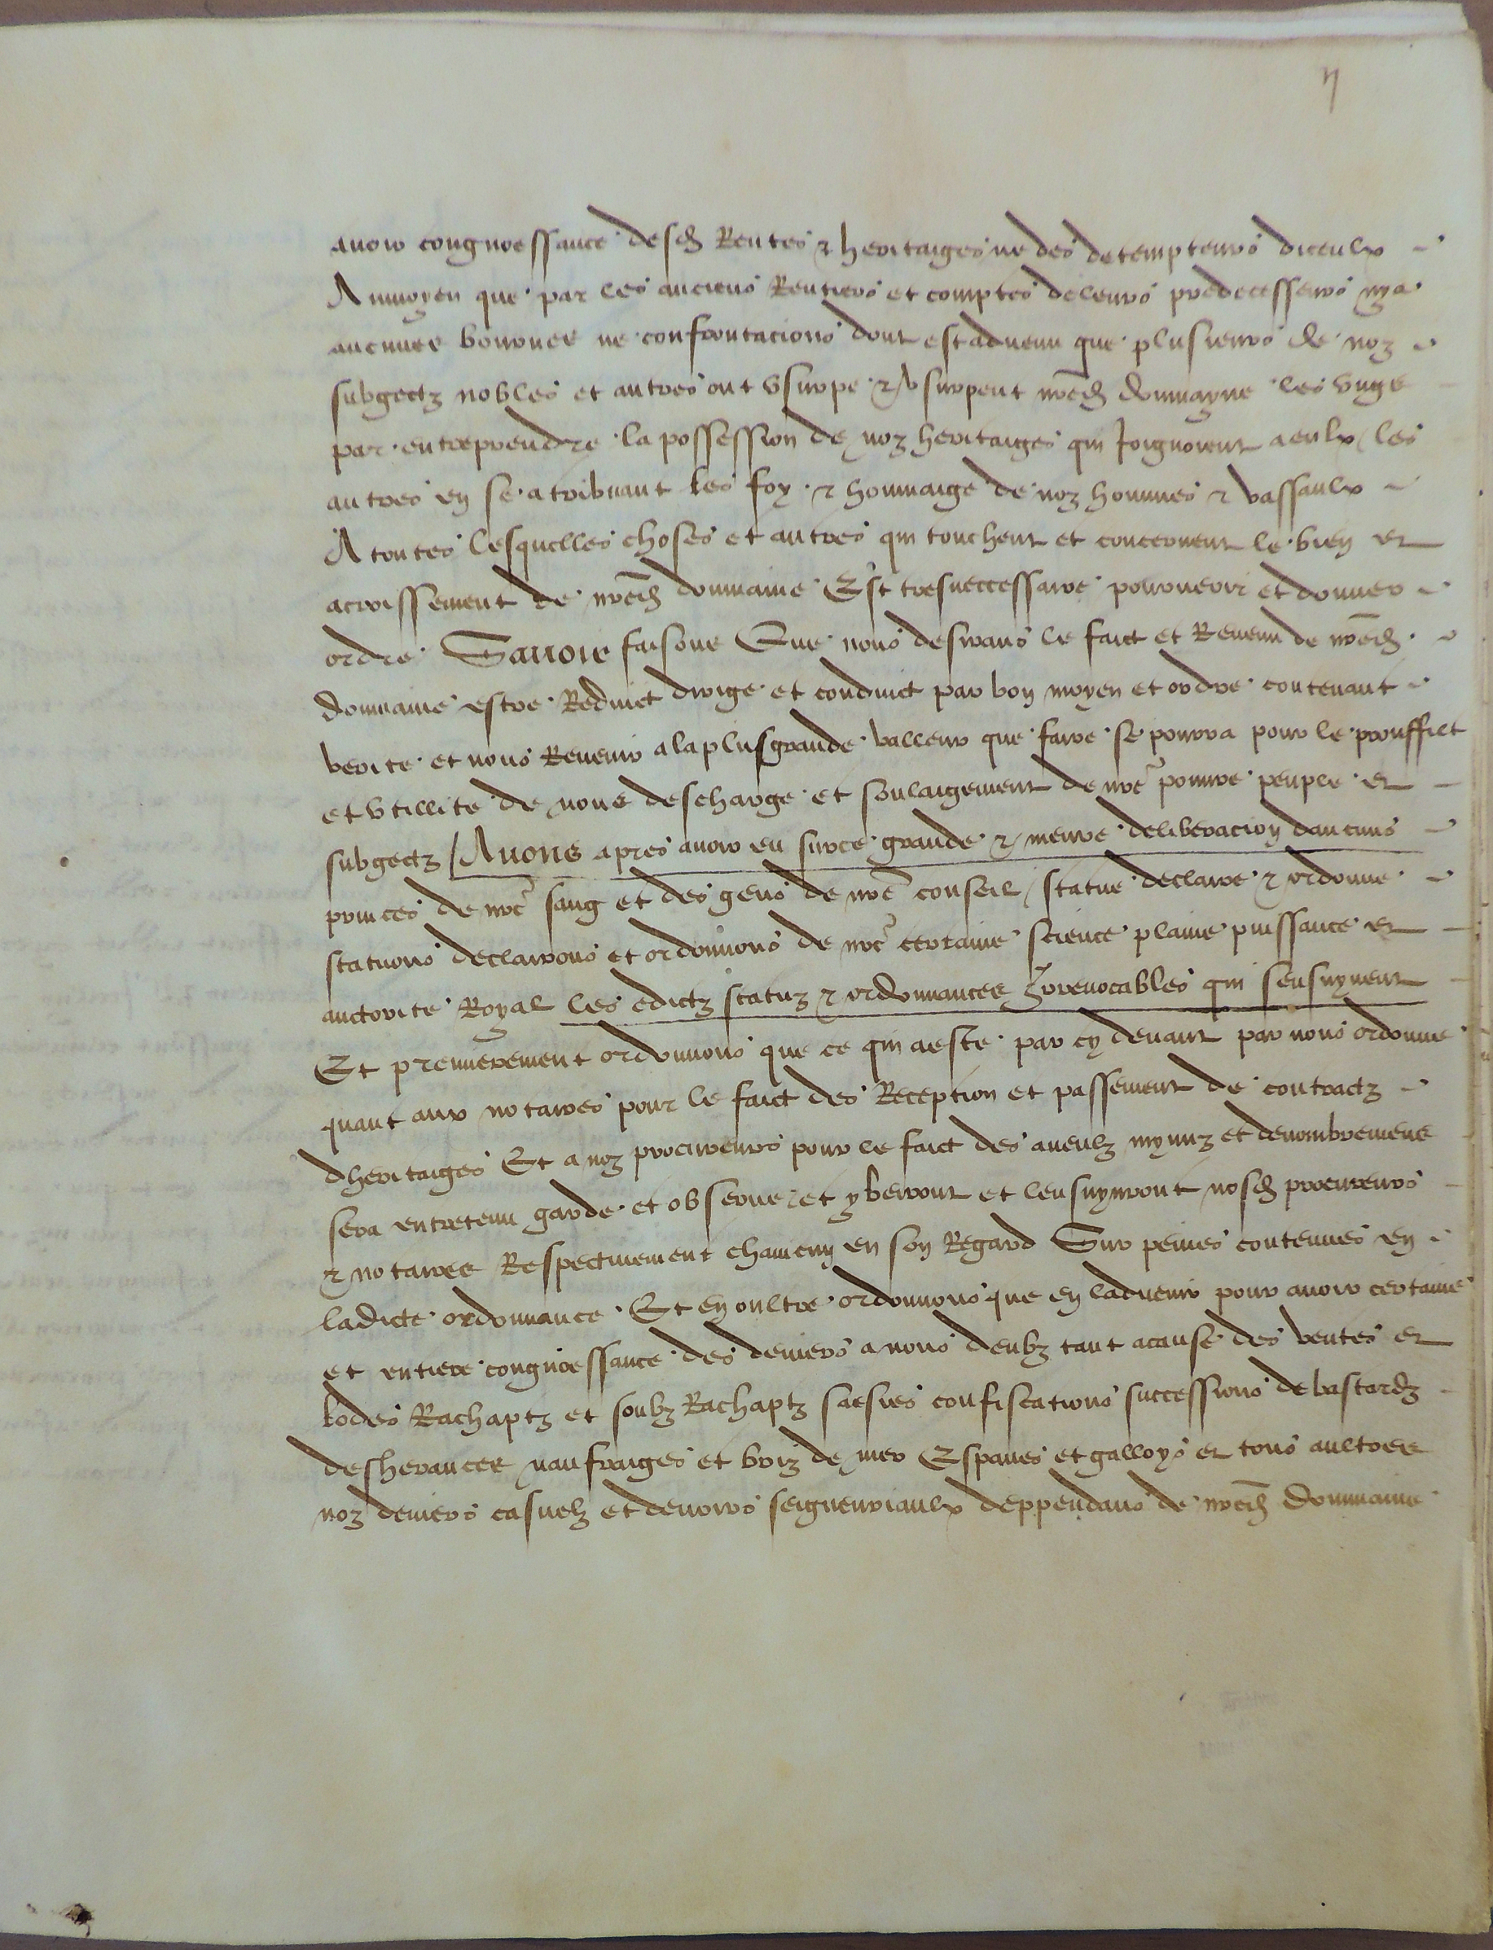 ij
avoir congnoessance desd Rentes & heritaiges ne des detempteurs diceulx
Aumoyen que par les anciens Rentiers et comptes de leurs predecesseurs nya
aucunes bournes ne confrontacions dont est advenu que plusieurs de noz
subgectz nobles et autres ont usurpe & usurpent nred dommayne les ungs
par entreprendre la possession de noz heritaiges qui Joignoient a eulx les
autres en se atribuant les foy & hommaige de noz hommes & vassaulx
A toutes lesquelles choses et autres qui touchent et concernent le bien et
acroissement de nred dommaine Est tresneccessaire pourveoir et donner
ordre Savoir faisons Que nous desirans le faict et Revenu de nred
dommaine estre Reduict dirige et conduict par bon moyen et ordre contenant
verite et nous Revenir a la plus grande valleur que faire se pourra pour le prouffict
et utillite de nous descharge et soulaigement de nre pouvre peuple et
subgectz / Avons apres avoir eu surce grande & meure deliberacion daucuns
princes de nre sang et des gens de nre conseil / statue declaire & ordonne
statuons declairons et ordonnons de nre certaine science plaine puissance et
auctorite Royal les edictz statuz & ordonnances Irrevocables qui sensuyvent
Et premierement ordonnons que ce qui a este par cy devant par nous ordonne
quant aux notaires pour le faict des Reception et passement de contractz
dheritaiges Et a noz procureurs pour le faict des aveulz mynuz et denombremens
sera entretenu garde et observe et y verront et lensuyvront nosd procureurs
& notaires Respectivement chaincun en son Regard Sur peines contenues en
ladicte ordonnance Et en oultre ordonnons que en ladvenir pour avoir certaine
et entiere congnoessance des deniers a nous deubz tant a cause des ventes et
lodes Rachaptz et soubz Rachaptz saesies confiscations successions de bastardz
desherances naufraiges et briz de mer Espaves et galloys et tous aultres
noz deniers casuelz et devoirs seigneuriaulx deppendans de nred dommaine